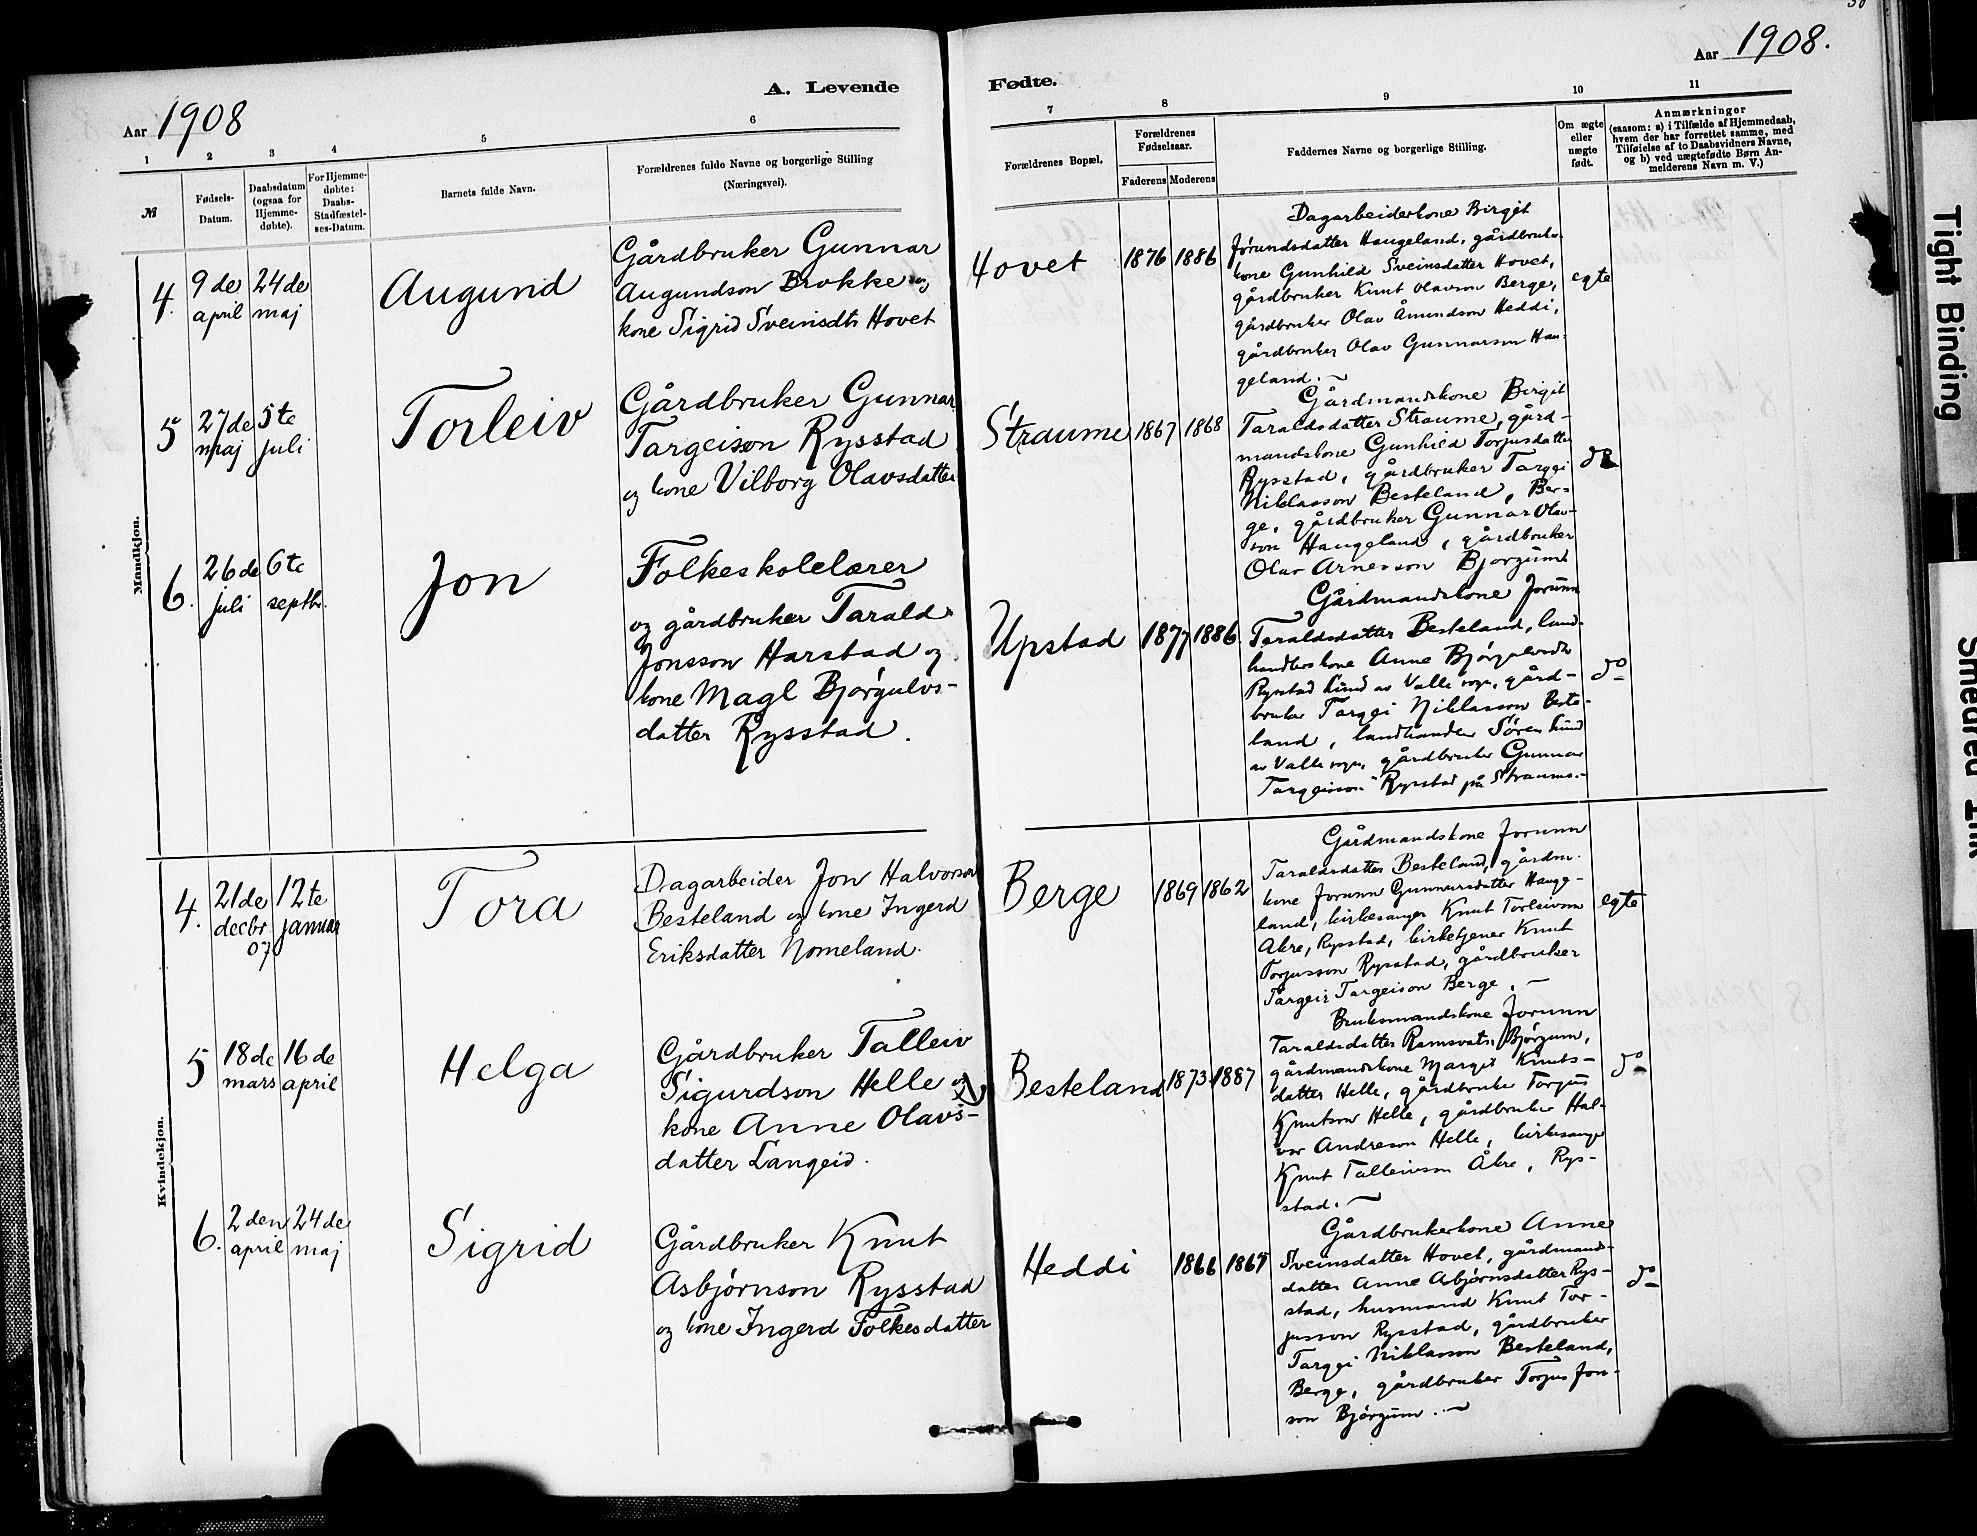 Aar 1908
A. Levende
1 2 3 4 5 6
№
Fødsels-
Datum.
Daabsdatum
(ogsaa for
Hjemme-
døbte).
For Hjemme-
døbte:
Daabs-
Stadfæstel-
ses-Datum.
Barnets fulde Navn.
Forældrenes fulde Navne og borgerlige Stilling
(Næringsvei).
Mandkjøn.
4. 9de april 24de maj
Augund
Gårdbruker Gunnar
Augundson Brokke og
kone Sigrid Sveinsdtr Hovet
5 27de maj 5te juli
Torleiv
Gårdbruker Gunnar
Targeison Rysstad
og kone Vilborg Olavsdatter
6. 26de juli 6te septbr.
Jon
Folkeskolelærer
og gårdbruker Tarald
Jonsson Harstad og
kone Magl Bjørgulvs-
datter Rysstad.
Kvindekjøn.
4. 21de decbr 07 12te januar
Tora
Dagarbeider Jon Halvorson
Besteland og kone Ingerd
Eriksdatter Nomeland.
5 18de mars 16de april
Helga
Gårdbruker Talleiv
Sigurdson Helle og
kone Anne Olavs-
datter Langeid.
6. 2den april 24de maj
Sigrid
Gårdbruker Knut
Asbjørnson Rysstad
og kone Ingerd Folkesdatter
Aar 1908.
Fødte.
7 8 9 10 11
Forældrenes Bopæl.
Forældrenes
Fødselsaar.
Faderens Moderens
Faddernes Navne og borgerlige Stilling.
Om ægte
eller
uægte
født.
Anmærkninger
(saasom: a) i Tilfælde af Hjemmedaab,
hvem der har forrettet samme, med
Tilføielse af to Daabsvidners Navne,
og b) ved uægtefødte Børn An-
melderens Navn m. V.)
Hovet 1876 1886
Dagarbeiderkone Birgit
Jørundsdatter Haugeland, gårdbruker
kone Gunhild Sveinsdatter Hovet,
gårdbruker Knut Olavson Berge,
gårdbruker Olav Åmundson Heddi,
gårdbruker Olav Gunnarson Hau-
geland.
egte
Straume 1867 1868
Gårdmandskone Birgit
Taraldsdatter Straume, gård-
mandskone Gunhild Torjusdatter
Rysstad, gårdbruker Targei
Niklasson Besteland, Ber-
ge, gårdbruker Gunnar Olav-
son Haugeland, gårdbruker
Olav Arneson Bjorgum
do
Upstad 1877 1886.
Gårdmandskone Jorunn
Taraldsdatter Besteland, land-
handlerskone Anne Bjørgulvsdtr
Rysstad Lund av Valle sogn, gård-
bruker Targei Niklasson Beste-
land, landhandler Søren Lund
av Valle sogn, gårdbruker Gunnar
Targeison Rysstad på Straume.
do
Berge 1869 1862
Gårdmandskone Jorunn
Taraldsdatter Besteland, gårdm.
kone Jorunn Gunnarsdatter Hauge-
land, kirkesanger Knut Torleivson
Akre, Rysstad, kirketjener Knut
Torjusson Rysstad, gårdbruker
Targeis Targeison Berge.
egte
Besteland 1873 1887
Bruksmandskone Jorunn
Taraldsdatter Ramsvatn Bjørgum,
gårdmandskone Margit Knuts-
datter Helle, gårdbruker Torgus
Knutson Helle, gårdbruker Hal-
vor Andreson Helle, kirkesanger
Knut Talleivson Åkre, Rys-
stad.
do
Heddi 1866 1867
Gårdbrukerkone Anne
Sveinsdatter Hovet, gårdmand-
datter Anne Asbjørnsdatter Rys-
stad, husmand Knut Tor-
jusson Rysstad, gårdbruker
Targei Niklasson Besteland,
Berge, gårdbruker Torjus Jon-
son Bjørgum.
do
Tight Binding
Smeared Ink